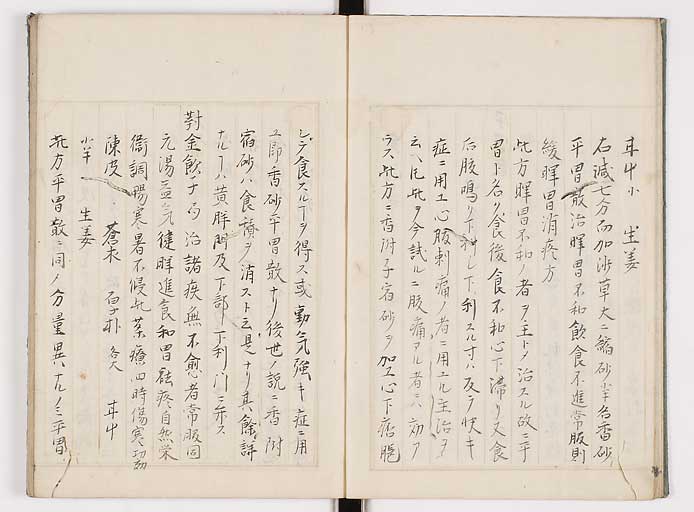 甘中小 生姜
右減七分而加沙草大二縮砂小半名香砂
平胃散治脾胃不和飲食不進常服則
緩脾胃消痰方
此方脾胃不和ノ者ヲ主トノ治スル故ニ平
胃ト名ク食後食不和心下滞リ又食
后腹鳴リ下利シ下利スル寸ハ反テ快キ
症ニ用エ心腹刺痛ノ者ニ用エル主治ヲ
云ヘ氏此ヲ今試ルニ腹痛ヲル者ニハ効ヲ
ラス此方ニ香附子宿砂ヲ加エ心下痞
シテ食スルヿヲ得ス或動気強キ症ニ用
エ即香砂平胃散ナリ後世ノ説ニ香附
宿砂ハ食積ヲ消スト云是ナリ其餘ハ詳
ナルヿハ黄胖門及下部ノ下利門ニ参ス
對金飲子 局 治諸疾無不愈者常服固
元湯益気健脾進食和胃祛痰自然栄
衛調暢寒暑不侵此薬療四時傷寒功効
陳皮 蒼朮 厚朴 各大 甘中
小半 生姜
此方平胃散ニ同ノ分量異ナルノミ平胃